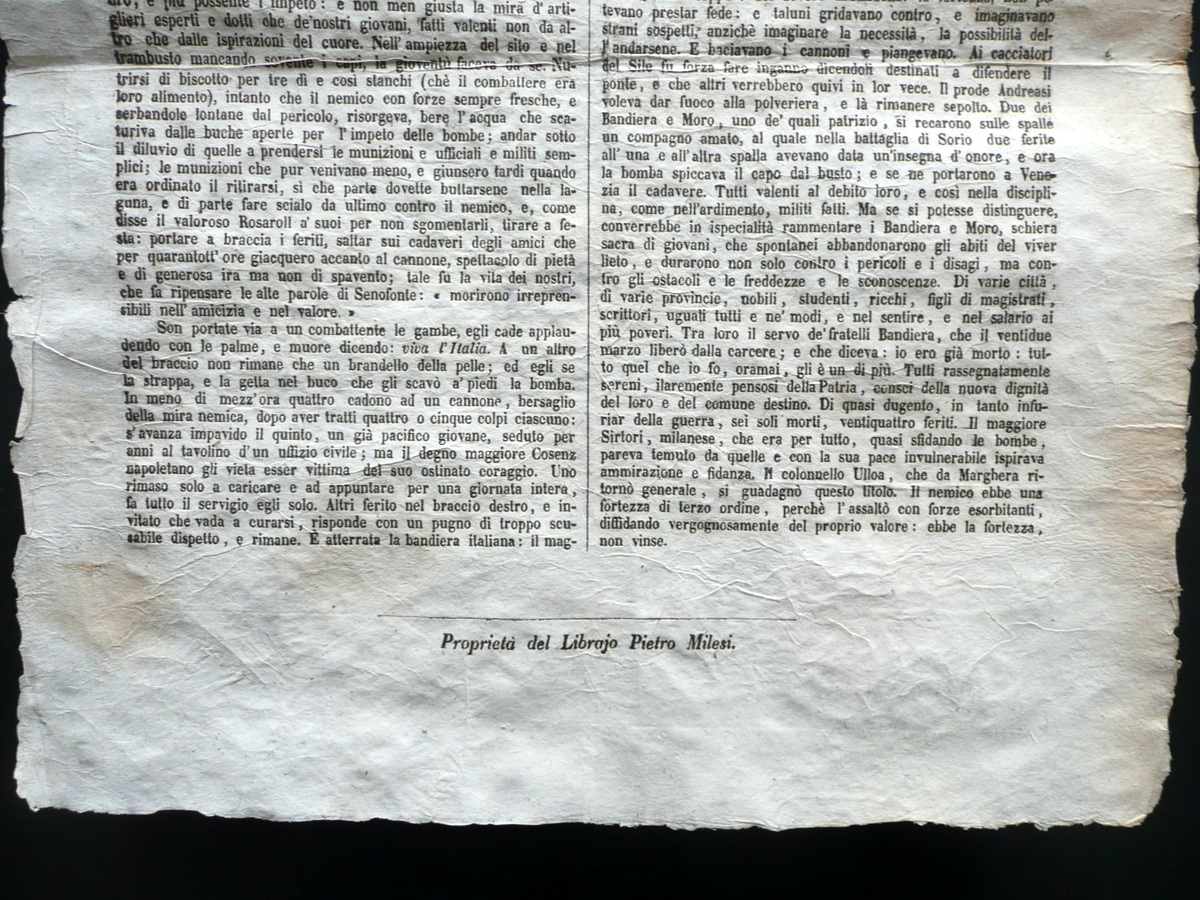 e più possente l'impeto: e non men giusta la mira d'arti-
glieri esperti e dotti che de'nostri giovani, fatti valenti non da al-
tro che dalle ispirazioni del cuore. Nell'ampiezza del sito e nel
trambusto mancando sovente i capi, la gioventù faceva da se. Nu-
trirsi di biscotto per tre dì e così stanchi (chè il combattere era
loro alimento), intanto che il nemico con forze sempre fresche, e
serbandole lontane dal pericolo, risorgeva, bere l'acqua che sca-
turiva dalle buche aperte per l'impeto delle bombe; andar sotto
il diluvio di quelle a prendersi le munizioni e ufficiali e militi sem-
plici; le munizioni che pur venivano meno, e giunsero tardi quando
era ordinato il ritirarsi, sì che parte dovette buttarsene nella la-
guna, e di parte fare scialo da ultimo contro il nemico, e, come
disse il valoroso Rosaroll a' suoi per non sgomentarli, tirare a fe-
sta: portare a braccia i feriti, saltar sui cadaveri degli amici che
per quarantott' ore giacquero accanto al cannone, spettacolo di pietà
e di generosa ira ma non di spavento; tale fu la vita dei nostri,
che fa ripensare le alte parole di Senofonte: « morirono irrepren-
sibili nell'amicizia e nel valore. »
Son portate via a un combattente le gambe, egli cade applau-
dendo con le palme, e muore dicendo: viva l'Italia. A un altro
del braccio non rimane che un brandello della pelle; ed egli se
la strappa, e la getta nel buco che gli scavò a'piedi la bomba.
In meno di mezz'ora quattro cadono ad un cannone, bersaglio
della mira nemica, dopo aver tratti quattro o cinque colpi ciascuno:
s'avanza impavido il quinto, un già pacifico giovane, seduto per
anni al tavolino d'un uffizio civile; ma il degno maggiore Cosenz
napoletano gli vieta esser vittima del suo ostinato coraggio. Uno
rimaso solo a caricare e ad appuntare per una giornata intera,
fa tutto il servigio egli solo. Altri ferito nel braccio destro, e in-
vitato che vada a curarsi, risponde con un pugno di troppo scu-
sabile dispetto, e rimane. È atterrata la bandiera italiana: il mag-
tevano prestar fede: e taluni gridavano contro, e imaginavano
strani sospetti, anzichè imaginare la necessità, la possibilità del-
l'andarsene. E baciavano i cannoni e piangevano. Ai cacciatori
del Sile fu forza fare inganno dicendoli destinati a difendere il
ponte, e che altri verrebbero quivi in lor vece. Il prode Andreasi
voleva dar fuoco alla polveriera, e là rimanere sepolto. Due dei
Bandiera e Moro, uno de' quali patrizio, si recarono sulle spalle
un compagno amato, al quale nella battaglia di Sorio due ferite
all' una e all'altra spalla avevano data un'insegna d'onore, e ora
la bomba spiccava il capo dal busto; e se ne portarono a Vene-
zia il cadavere. Tutti valenti al debito loro, e così nella discipli-
na, come nell'ardimento, militi fatti. Ma se si potesse distinguere,
converrebbe in ispecialità rammentare i Bandiera e Moro, schiera
sacra di giovani, che spontanei abbandonarono gli abiti del viver
lieto, e durarono non solo contro i pericoli e i disagi, ma con-
tro gli ostacoli e le freddezze e le sconoscenze. Di varie città,
di varie provincie, nobili, studenti, ricchi, figli di magistrati,
scrittori, uguali tutti e ne' modi, e nel sentire, e nel salario ai
più poveri. Tra loro il servo de'fratelli Bandiera, che il ventidue
marzo liberò dalla carcere; e che diceva: io ero già morto: tut-
to quel che io fo, oramai, gli è un di più. Tutti rassegnatamente
sereni, ilaremente pensosi della Patria, consci della nuova dignità
del loro e del comune destino. Di quasi dugento, in tanto infu-
riar della guerra, sei soli morti, ventiquattro feriti. Il maggiore
Sirtori, milanese, che era per tutto, quasi sfidando le bombe,
pareva temuto da quelle e con la sua pace invulnerabile ispirava
ammirazione e fidanza. Il colonnello Ulloa, che da Marghera ri-
tornò generale, si guadagnò questo titolo. Il nemico ebbe una
fortezza di terzo ordine, perchè l'assaltò con forze esorbitanti,
diffidando vergognosamente del proprio valore: ebbe la fortezza,
non vinse.
Proprietà del Librajo Pietro Milesi.